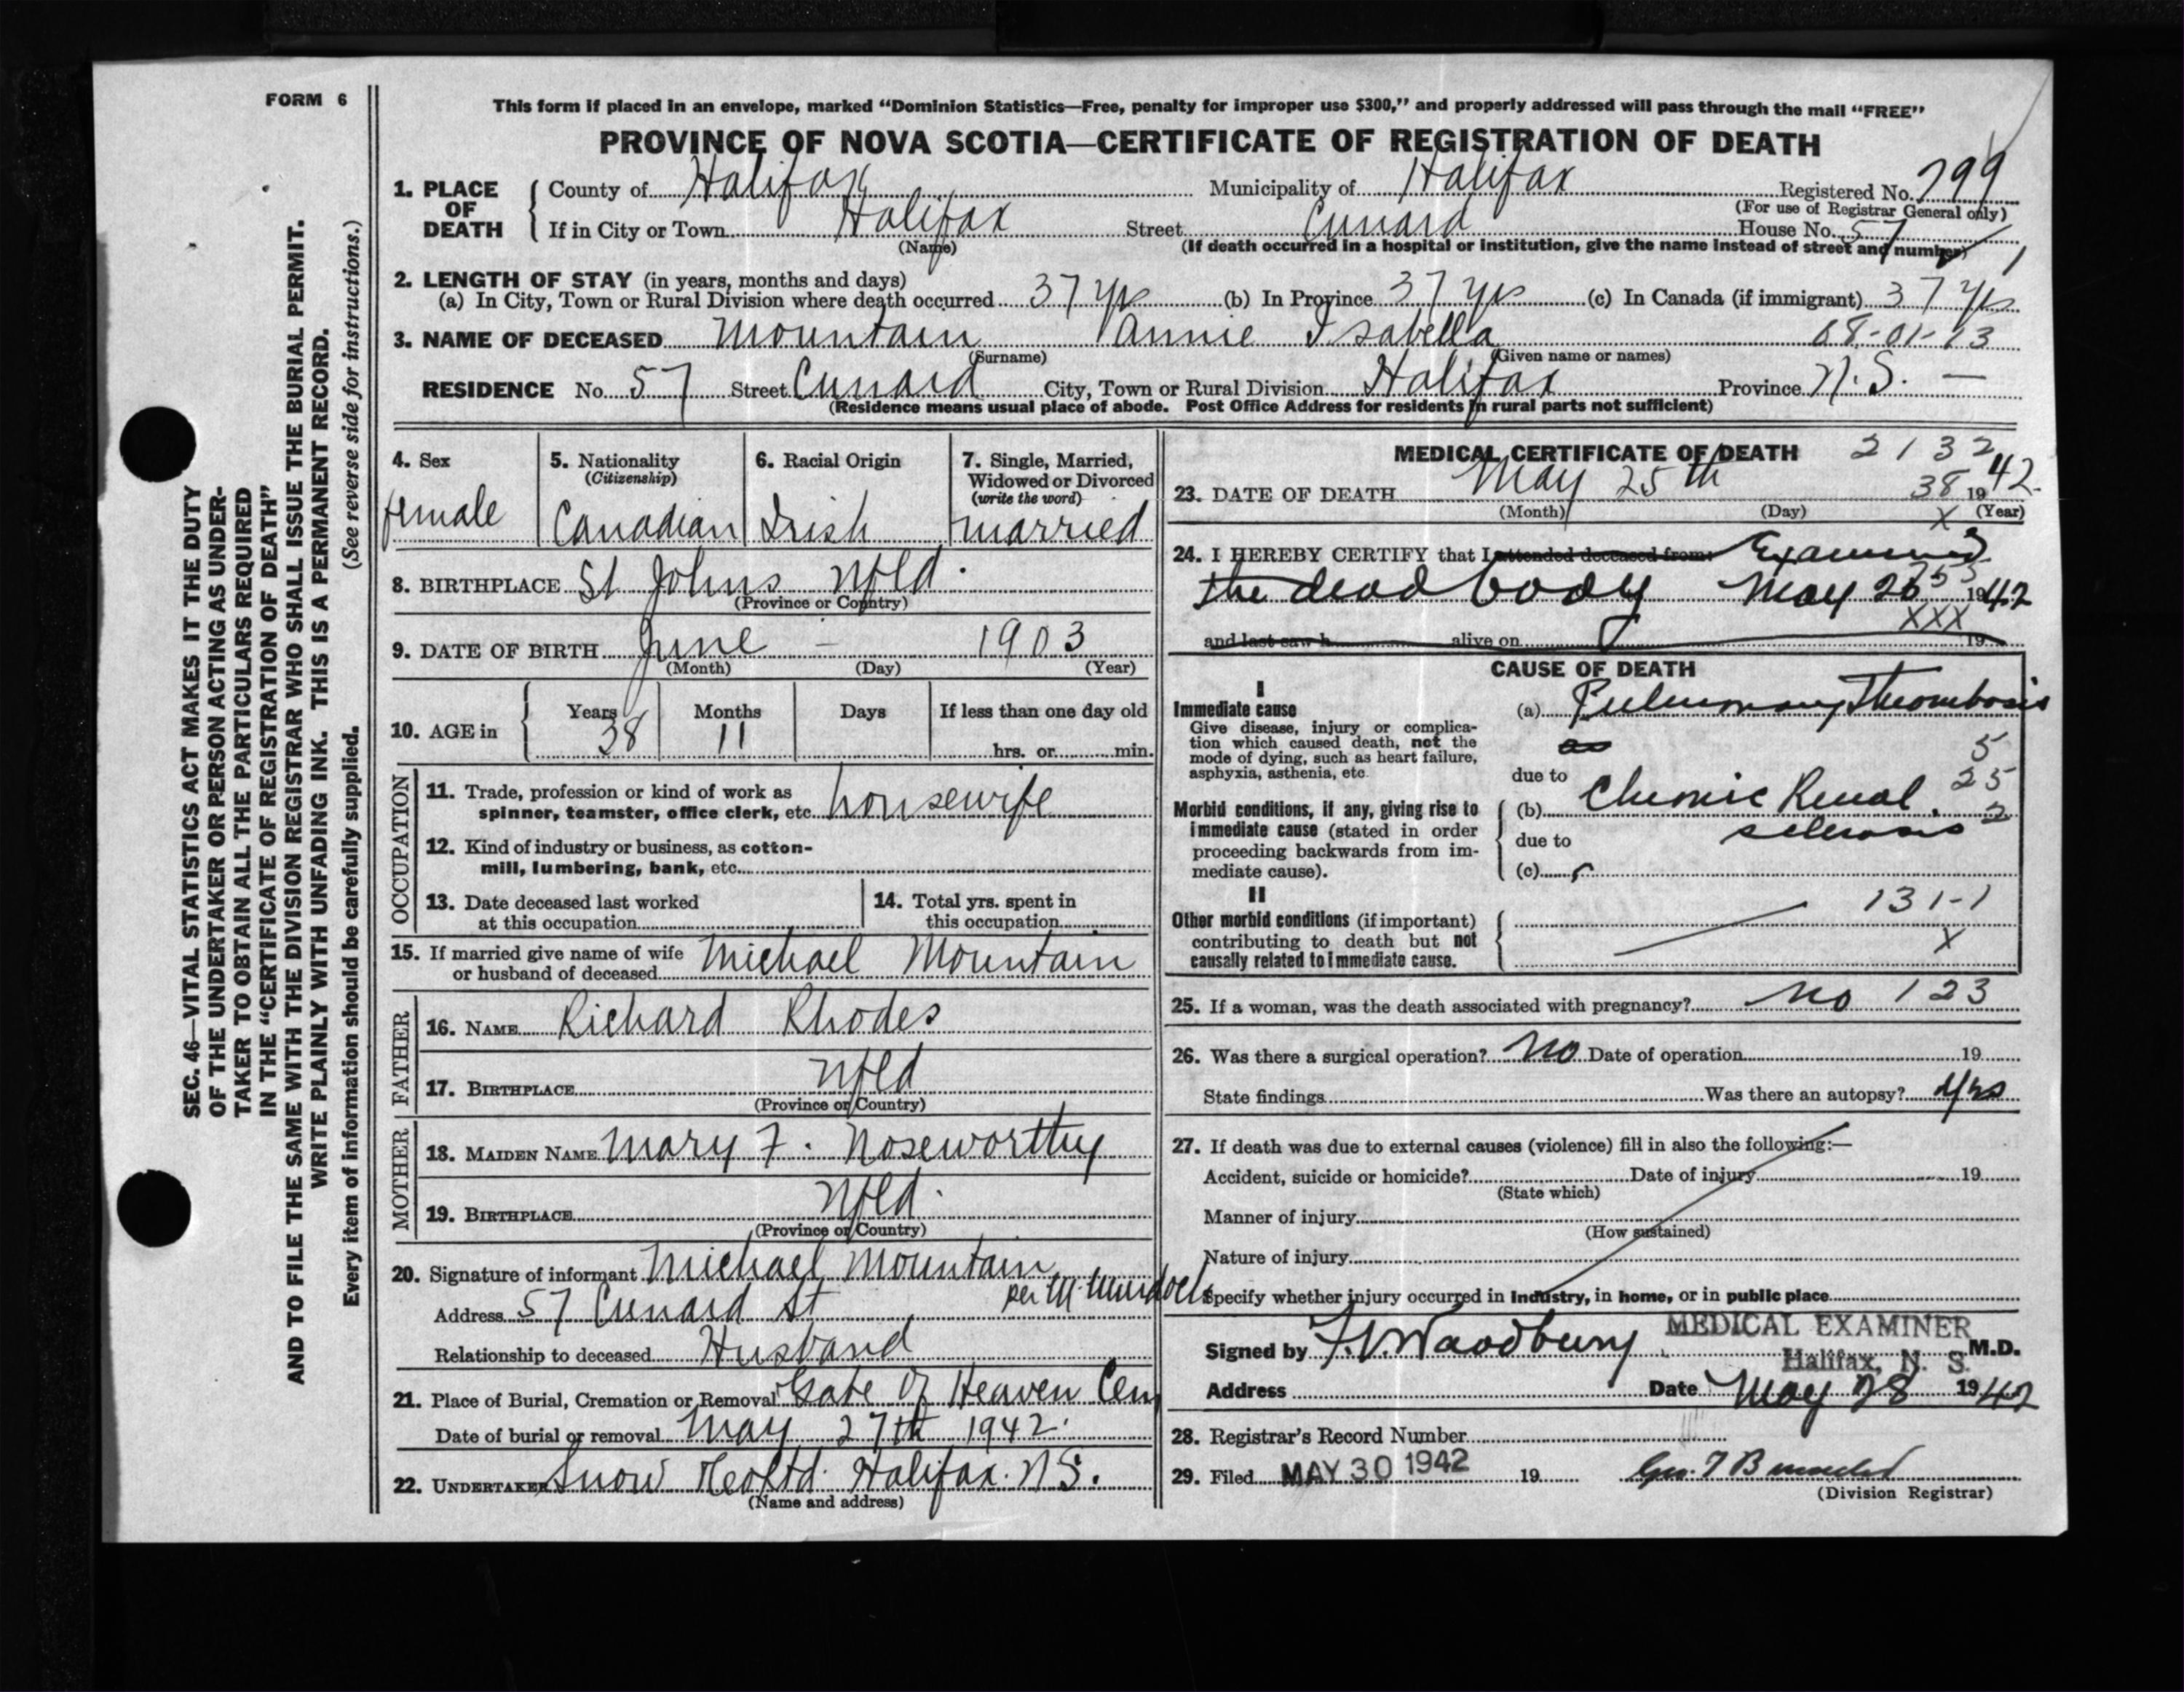 FORM 6
SEC. 46—VITAL STATISTICS ACT MAKES IT THE DUTY
OF THE UNDERTAKER OR PERSON ACTING AS UNDER-
TAKER TO OBTAIN ALL THE PARTICULARS REQUIRED
IN THE "CERTIFICATE OF REGISTRATION OF DEATH"
AND TO FILE THE SAME WITH THE DIVISION REGISTRAR WHO SHALL ISSUE THE BURIAL PERMIT.
WRITE PLAINLY WITH UNFADING INK. THIS IS A PERMANENT RECORD.
Every item of information should be carefully supplied. (See reverse side for instructions.)
This form if placed in an envelope, marked "Dominion Statistics—Free, penalty for improper use $300," and properly addressed will pass through the mail "FREE"
PROVINCE OF NOVA SCOTIA—CERTIFICATE OF REGISTRATION OF DEATH
1. PLACE OF DEATH County of Halifax Municipality of Halifax Registered No. 799
(For use of Registrar General only)
If in City or Town Halifax Street Cunard House No. 57
(Name) (If death occurred in a hospital or institution, give the name instead of street and number) 1
2. LENGTH OF STAY (in years, months and days)
(a) In City, Town or Rural Division where death occurred 37 yrs (b) In Province 37 yrs (c) In Canada (if immigrant) 37 yrs
3. NAME OF DECEASED Mountain Annie Isabella 08-01-13
(Surname) (Given name or names)
RESIDENCE No. 57 Street Cunard City, Town or Rural Division Halifax Province N.S. —
(Residence means usual place of abode. Post Office Address for residents in rural parts not sufficient)
4. Sex
female
5. Nationality
(Citizenship)
Canadian
6. Racial Origin
Irish
7. Single, Married,
Widowed or Divorced
(write the word)
married
8. BIRTHPLACE St Johns Nfld.
(Province or Country)
9. DATE OF BIRTH June — 1903
(Month) (Day) (Year)
10. AGE in Years Months Days If less than one day old
38 11 hrs. or min.
OCCUPATION
11. Trade, profession or kind of work as
spinner, teamster, office clerk, etc. housewife
12. Kind of industry or business, as cotton-
mill, lumbering, bank, etc.
13. Date deceased last worked
at this occupation
14. Total yrs. spent in
this occupation
15. If married give name of wife
or husband of deceased Michael Mountain
FATHER
16. NAME Richard Rhodes
17. BIRTHPLACE Nfld
(Province or Country)
MOTHER
18. MAIDEN NAME Mary F. Noseworthy
19. BIRTHPLACE Nfld.
(Province or Country)
20. Signature of informant Michael Mountain
per M. Murdoch
Address 57 Cunard St
Relationship to deceased Husband
21. Place of Burial, Cremation or Removal Gate Of Heaven Cem
Date of burial or removal May 27th 1942.
22. UNDERTAKER Snow Ltd. Halifax. N.S.
(Name and address)
MEDICAL CERTIFICATE OF DEATH 2132
23. DATE OF DEATH May 25th 38 1942.
(Month) (Day) X (Year)
24. I HEREBY CERTIFY that I attended deceased from: Examined
the dead body May 26 1942
XXX
and last saw h alive on 19
CAUSE OF DEATH
I
Immediate cause
Give disease, injury or complica-
tion which caused death, not the
mode of dying, such as heart failure,
asphyxia, asthenia, etc.
(a) Pulmonary Thrombosis
5
due to
25
Morbid conditions, if any, giving rise to
immediate cause (stated in order
proceeding backwards from im-
mediate cause).
(b) Chronic Renal 2
due to sclerosis
(c)
II
Other morbid conditions (if important)
contributing to death but not
causally related to immediate cause.
131-1
X
25. If a woman, was the death associated with pregnancy? no 123
26. Was there a surgical operation? No Date of operation 19
State findings Was there an autopsy? Yes
27. If death was due to external causes (violence) fill in also the following:—
Accident, suicide or homicide? Date of injury 19
(State which)
Manner of injury
(How sustained)
Nature of injury
Specify whether injury occurred in Industry, in home, or in public place
MEDICAL EXAMINER
Signed by F.V. Woodbury M.D.
Halifax, N. S.
Address Date May 28 1942
28. Registrar's Record Number
29. Filed MAY 30 1942 19
(Division Registrar)